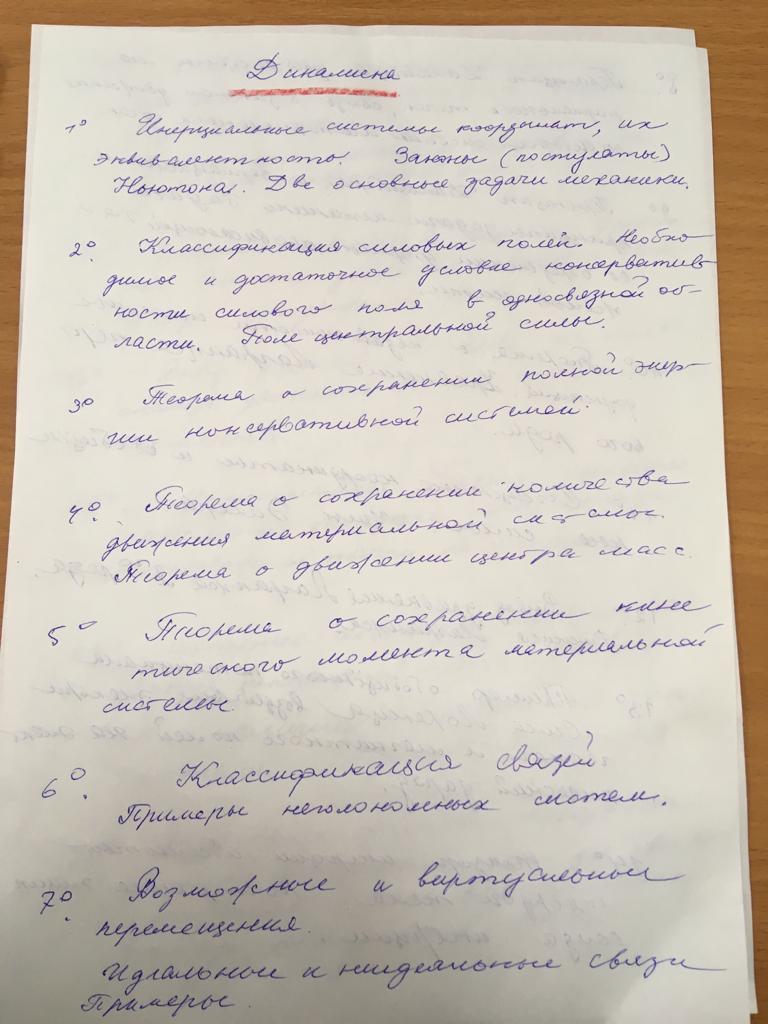 Динамика
1° Инерциальные системы координат, их
эквивалентность. Законы (постулаты)
Ньютона. Две основные задачи механики.
2° Классификация силовых полей. Необхо-
димое и достаточное условие консерватив-
ности силового поля в односвязной об-
ласти. Поле центральной силы.
3° Теорема о сохранении полной энер-
гии консервативной системой.
4° Теорема о сохранении количества
движения материальной системы.
Теорема о движении центра масс.
5° Теорема о сохранении кине
тического момента материальной
системы.
6° Классификация связей
Примеры неголономных систем.
7° Возможные и виртуальные
перемещения.
Идеальные и неидеальные связи
Примеры.